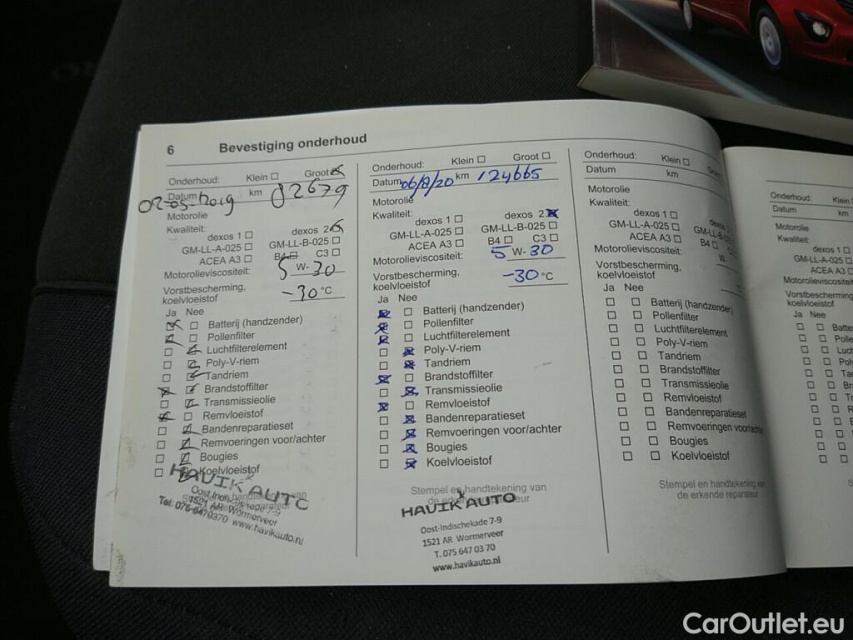 6 Bevestiging onderhoud
Onderhoud: Klein Groot
Datum km
Motorolie
Kwaliteit:
dexos 1 dexos 2
GM-LL-A-025 GM-LL-B-025
ACEA A3 B4 C3
Motorolieviscositeit: 5 W-30
Vorstbescherming,
koelvloeistof -30 °C
Ja Nee
Batterij (handzender)
Pollenfilter
Luchtfilterelement
Poly-V-riem
Tandriem
Brandstoffilter
Transmissieolie
Remvloeistof
Bandenreparatieset
Remvoeringen voor/achter
Bougies
Koelvloeistof
HAVIK AUTO
1521 AR Wormerveer
www.havikauto.nl
Onderhoud: Klein Groot
Datum 06/8/20 km 124665
Motorolie
Kwaliteit:
dexos 1 dexos 2
GM-LL-A-025 GM-LL-B-025
ACEA A3 B4 C3
Motorolieviscositeit: 5 W-30
Vorstbescherming,
koelvloeistof -30 °C
Ja Nee
Batterij (handzender)
Pollenfilter
Luchtfilterelement
Poly-V-riem
Tandriem
Brandstoffilter
Transmissieolie
Remvloeistof
Bandenreparatieset
Remvoeringen voor/achter
Bougies
Koelvloeistof
Stempel en handtekening van
HAVIK AUTO
Oost-Indischekade 7-9
1521 AR Wormerveer
T. 075 647 03 70
www.havikauto.nl
Onderhoud: Klein
Datum km
Motorolie
Kwaliteit:
dexos 1
GM-LL-A-025
ACEA A3 B4
Motorolieviscositeit: W
Vorstbescherming,
koelvloeistof
Ja Nee
Batterij (handzender)
Pollenfilter
Luchtfilterelement
Poly-V-riem
Tandriem
Brandstoffilter
Transmissieolie
Remvloeistof
Bandenreparatieset
Remvoeringen voor/achter
Bougies
Koelvloeistof
Stempel en handtekening
de erkende reparateur
Onderhoud: Klein
Datum km
Motorolie
Kwaliteit:
dexos 1
GM-LL-A-025
ACEA A3
Motorolieviscositeit
Vorstbescherming
koelvloeistof
Ja Nee
CarOutlet.eu